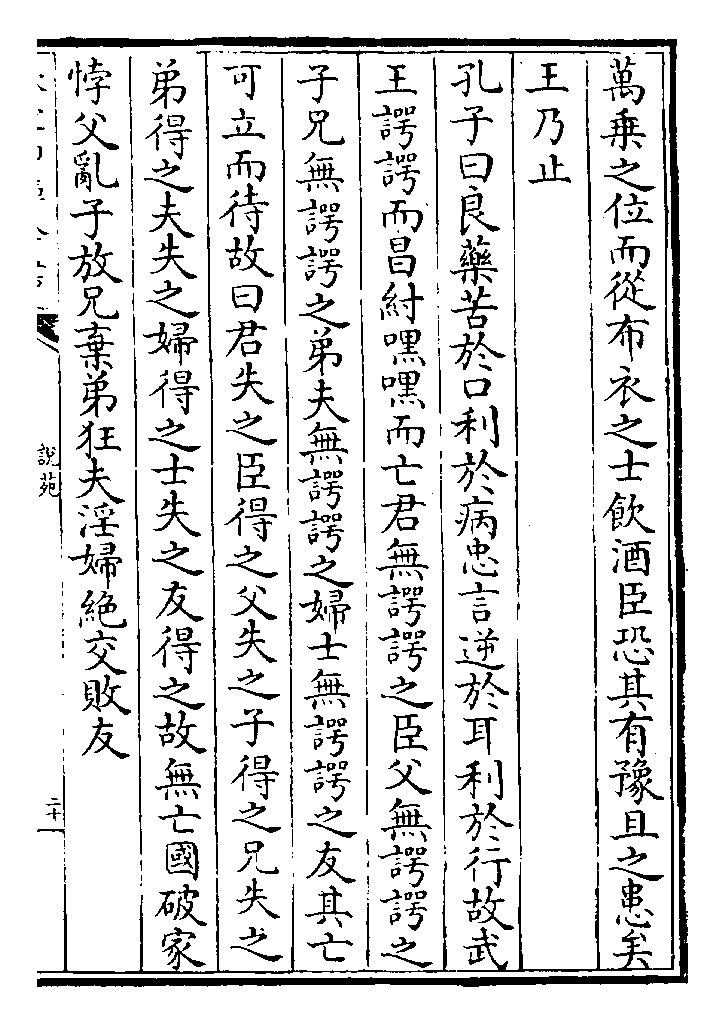 萬乗之位而從布衣之士飲酒臣恐其有豫且之患矣
王乃止
孔子曰良藥苦於口利於病忠言逆於耳利於行故武
王諤諤而昌紂嘿嘿而亡君無諤諤之臣父無諤諤之
子兄無諤諤之弟夫無諤諤之婦士無諤諤之友其亡
可立而待故曰君失之臣得之父失之子得之兄失之
弟得之夫失之婦得之士失之友得之故無亡國破家
悖父亂子放兄棄弟狂夫淫婦絶交敗友
說苑
二十